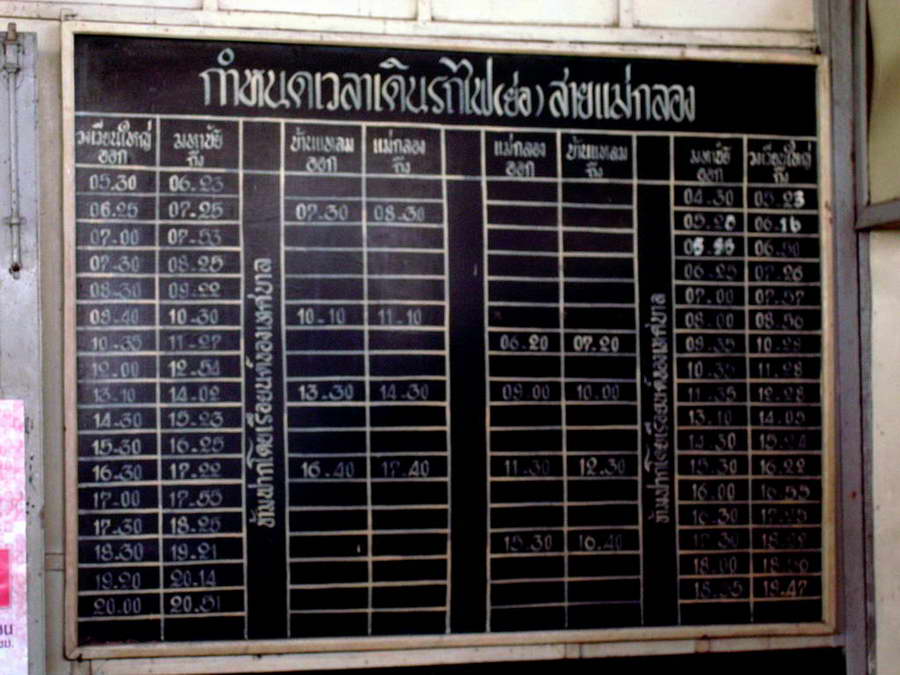 กำหนดเวลาเดินรถไฟ(ย่อ) สายแม่กลอง
วงเวียนใหญ่ มหาชัย บ้านแหลม แม่กลอง แม่กลอง บ้านแหลม มหาชัย วงเวียนใหญ่
ออก ถึง ออก ถึง ออก ถึง ออก ถึง
05.30 06.23 04.30 05.23
06.25 07.25 07.30 08.30 06.16
07.00 07.53
07.30 08.25 06.25 07.26
08.30 09.22 07.00 07.57
09.40 10.30 10.10 11.10 08.00 08.56
10.35 11.27 06.20 07.20 09.35 10.28
12.00 12.54 10.35 11.28
13.10 14.02 13.30 14.30 09.00 10.00 11.35 12.28
14.30 15.23 13.10 14.05
15.30 16.25 14.30 15.24
16.30 17.22 16.40 17.40 11.30 12.30 15.30 16.22
17.00 17.55 16.00 16.55
17.30 18.25 16.30 17.25
18.30 19.21 15.30 16.40 17.30
19.20 20.14 18.00
20.00 20.51 18.55 19.47
ข้ามฟากโดยเรือยนต์ของเทศบาล
ข้ามฟากโดยเรือยนต์ของเทศบาล